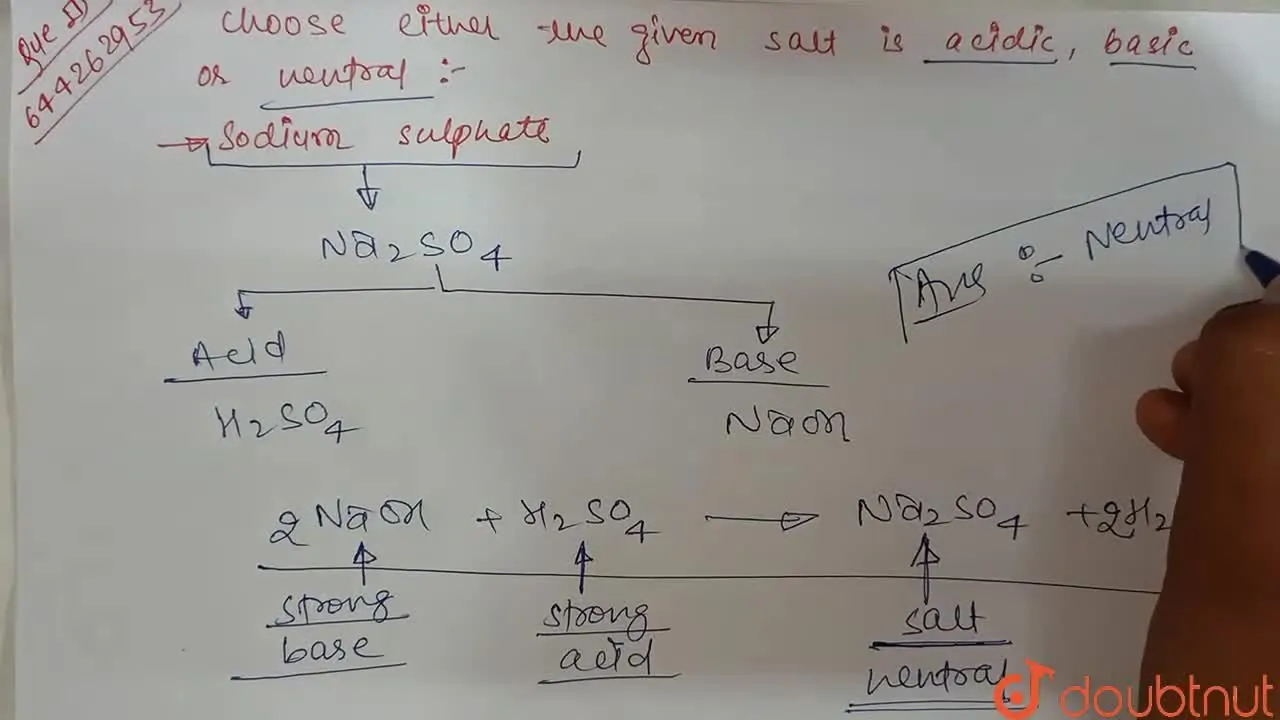 Que ID
644262953
choose either the given salt is acidic, basic
or neutral :-
→ Sodium sulphate
Na2SO4
Acid
Base
H2SO4
NaOH
Ans :- Neutral
2NaOH + H2SO4 → Na2SO4 + 2H2
strong base
strong acid
salt
neutral
doubtnut